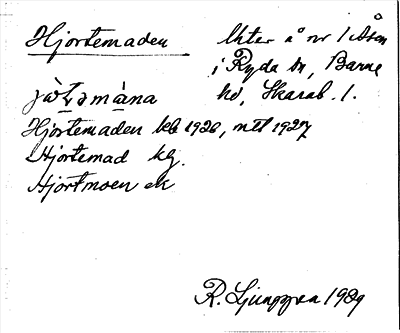 Hjortemaden
Åsen
i Ryda sn, Barne
hd, Skarab. l.
Hjortemaden kb 1926, mtl 1927
Hjortemad kg.
Hjortmoen ek
R. Ljunggren 1929